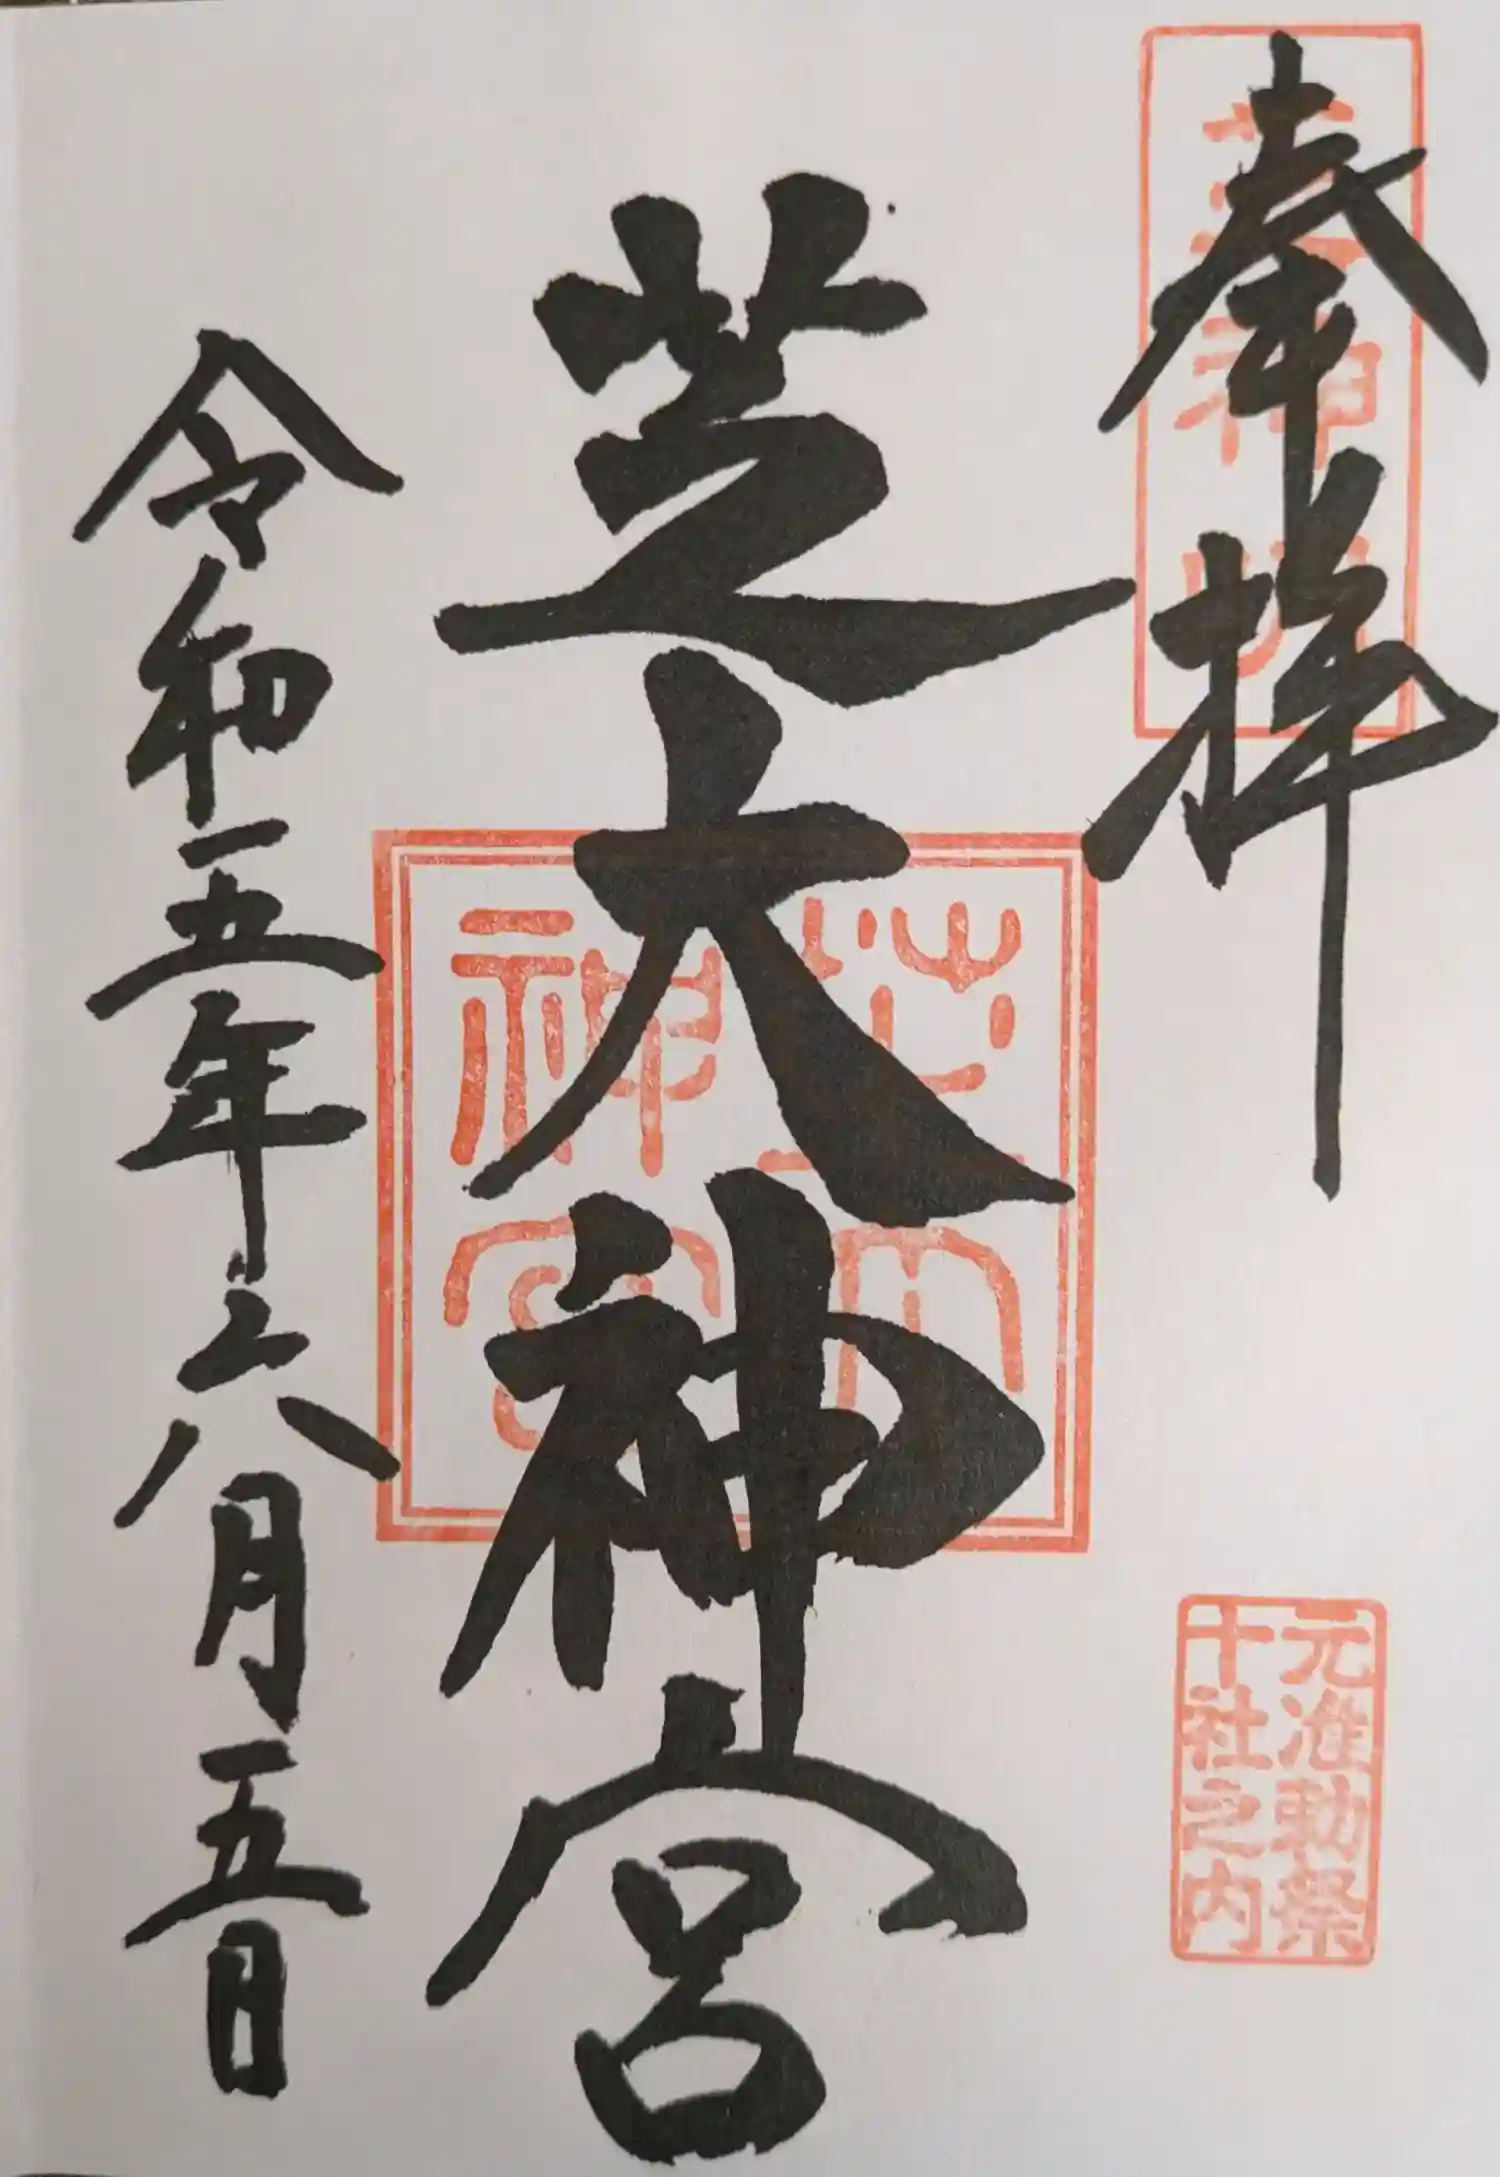 奉拝
芝大神宮
令和五年六月五日
元准勅祭
十社之内
芝大
神宮